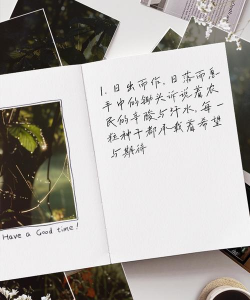 1. 日出而作，日落而息
手中的锄头诉说着农
民的辛酸与汗水，每一
粒种子都承载着希望
与期待
Have a Good time!